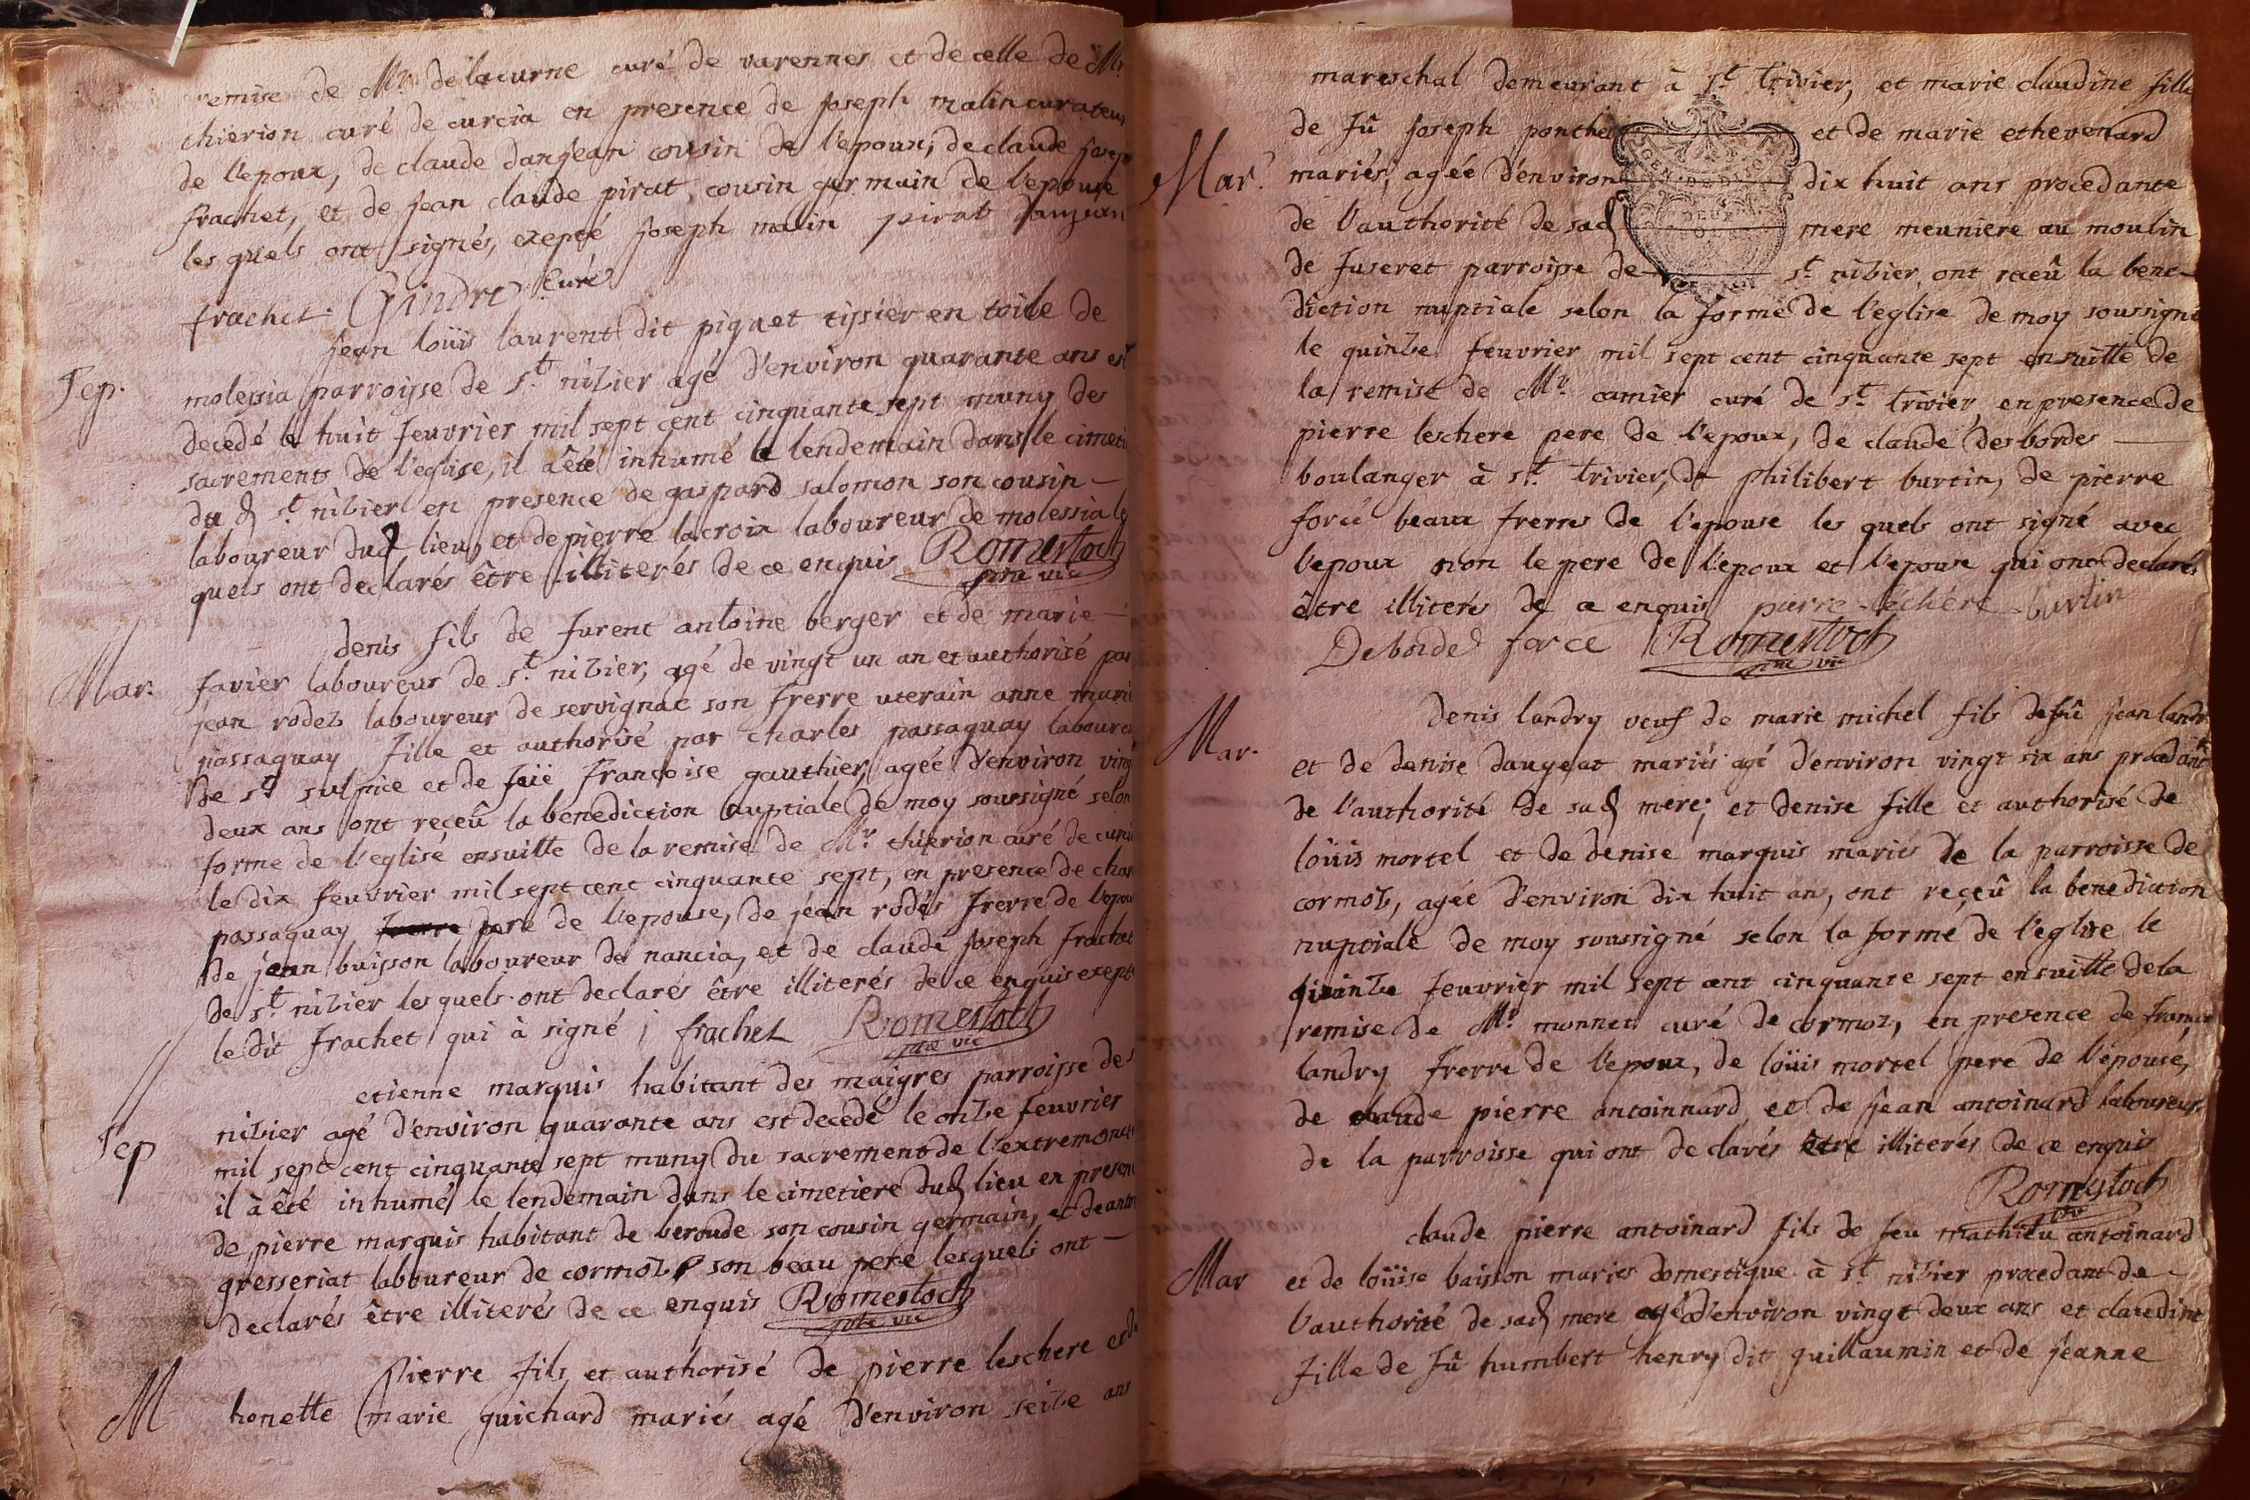 remise de Mr. delacurne curé de varennes et de celle de Mr.
chierion curé de curcia en presence de joseph malin curateur
de l'epoux, de claude danjean cousin de l'epoux, de claude joseph
frachet, et de jean claude pirat, cousin germain de l'epouse
les quels ont signés, exepté joseph malin pirat danjean
frachet. Gindre Curé
jean loüis laurent dit piquet tissier en toile de
Sep.
molessia parroisse de st. nizier agé d'environ quarante ans est
decedé le huit feuvrier mil sept cent cinquante sept muny des
sacrements de l'eglise, il à êté inhumé le lendemain dans le cimeti
du d st. nizier en presence de gaspard salomon son cousin —
laboureur dud lieu, et de pierre lacroix laboureur de molessia les
quels ont declarés être illiterés de ce enquis Romestoch
ptre vic
denis fils de furent antoine berger et de marie —
Mar.
favier laboureur de st. nizier, agé de vingt un an et authorisé par
jean rodez laboureur de servignac son frerre uterain anne marie
passaquay fille et authorisé par charles passaquay laboureur
de st sulpice et de feüe françoise gauthier, agée d'environ vingt
deux ans ont reçeû la benediction nuptiale de moy soussigné selon
forme de l'eglise ensuitte de la remise de Mr. thierion curé de curcia
le dix feuvrier mil sept cent cinquante sept, en presence de char
passaquay pere de l'epouse, de jean rodés frerre de l'epoux
de jean buisson laboureur de nancia, et de claude joseph frachet
de st. nizier les quels ont declarés être illiterés de ce enquis exepté
le dit frachet qui à signé ; frachet Romestoch
ptre vic
etienne marquis habitant des maigres parroisse de s
Sep
nizier agé d'environ quarante ans est decedé le onze feuvrier
mil sept cent cinquante sept muny du sacrement de l'extremonct
il à êté inhumé le lendemain dans le cimetiere dud lieu en presenc
de pierre marquis habitant de beroude son cousin germain, et de antoi
gresseriat laboureur de cormoz son beau pere lesquels ont —
declarés être illiterés de ce enquis Romestoch
ptre vic
pierre fils et authorisé de pierre leschere et de
M
honette marie guichard mariés agé d'environ seize ans
mareschal demeurant à st. trivier, et marie claudine fille
de fû joseph ponthet et de marie ethevenard
Mar.
mariés, agée d'environ dix huit ans procedante
de l'authorité de sad mere meuniere au moulin
DEUX
de fuseret parroisse de st. nizier, ont receû la bene-
diction nuptiale selon la forme de l'eglise de moy soussigné
le quinze feuvrier mil sept cent cinquante sept ensuitte de
la remise de Mr. camier curé de st. trivier, en presence de
pierre leschere pere de l'epoux, de claude desbordes —
boulanger à st. trivier, de philibert burtin, de pierre
forcé beaux frerres de l'epouse les quels ont signé avec
l'epoux non le pere de l'epoux et l'epouse qui ont declarés
être illiterés de ce enquis pierre léchere burtin
Debordes force Romestoch
ptre vic
denis landry veuf de marie michel fils defû jean landr
Mar.
et de denise daugeat mariés agé d'environ vingt six ans procedant
de l'authorité de sad mere; et denise fille et authorisé de
loüis mortel et de denise marquis mariés de la parroisse de
cormoz, agée d'environ dix huit ans, ont reçeû la benediction
nuptiale de moy soussigné selon la forme de l'eglise le
quinze feuvrier mil sept cent cinquante sept ensuitte dela
remise de Mr. monnet curé de cormoz, en presence de françois
landry frerre de l'epoux, de loüis mortel pere de l'epouse,
de claude pierre antoinnard, et de jean antoinard laboureurs
de la parroisse qui ont declarés être illiterés de ce enquis
Romestoch
ptre vic
claude pierre antoinard fils de feu mathieu antoinard
Mar
et de loüise baisson mariés domestique à st. nizier procedant de
l'authorité de sad mere agé d'environ vingt deux ans et claudine
fille de fû humbert henry dit guillaumin et de jeanne